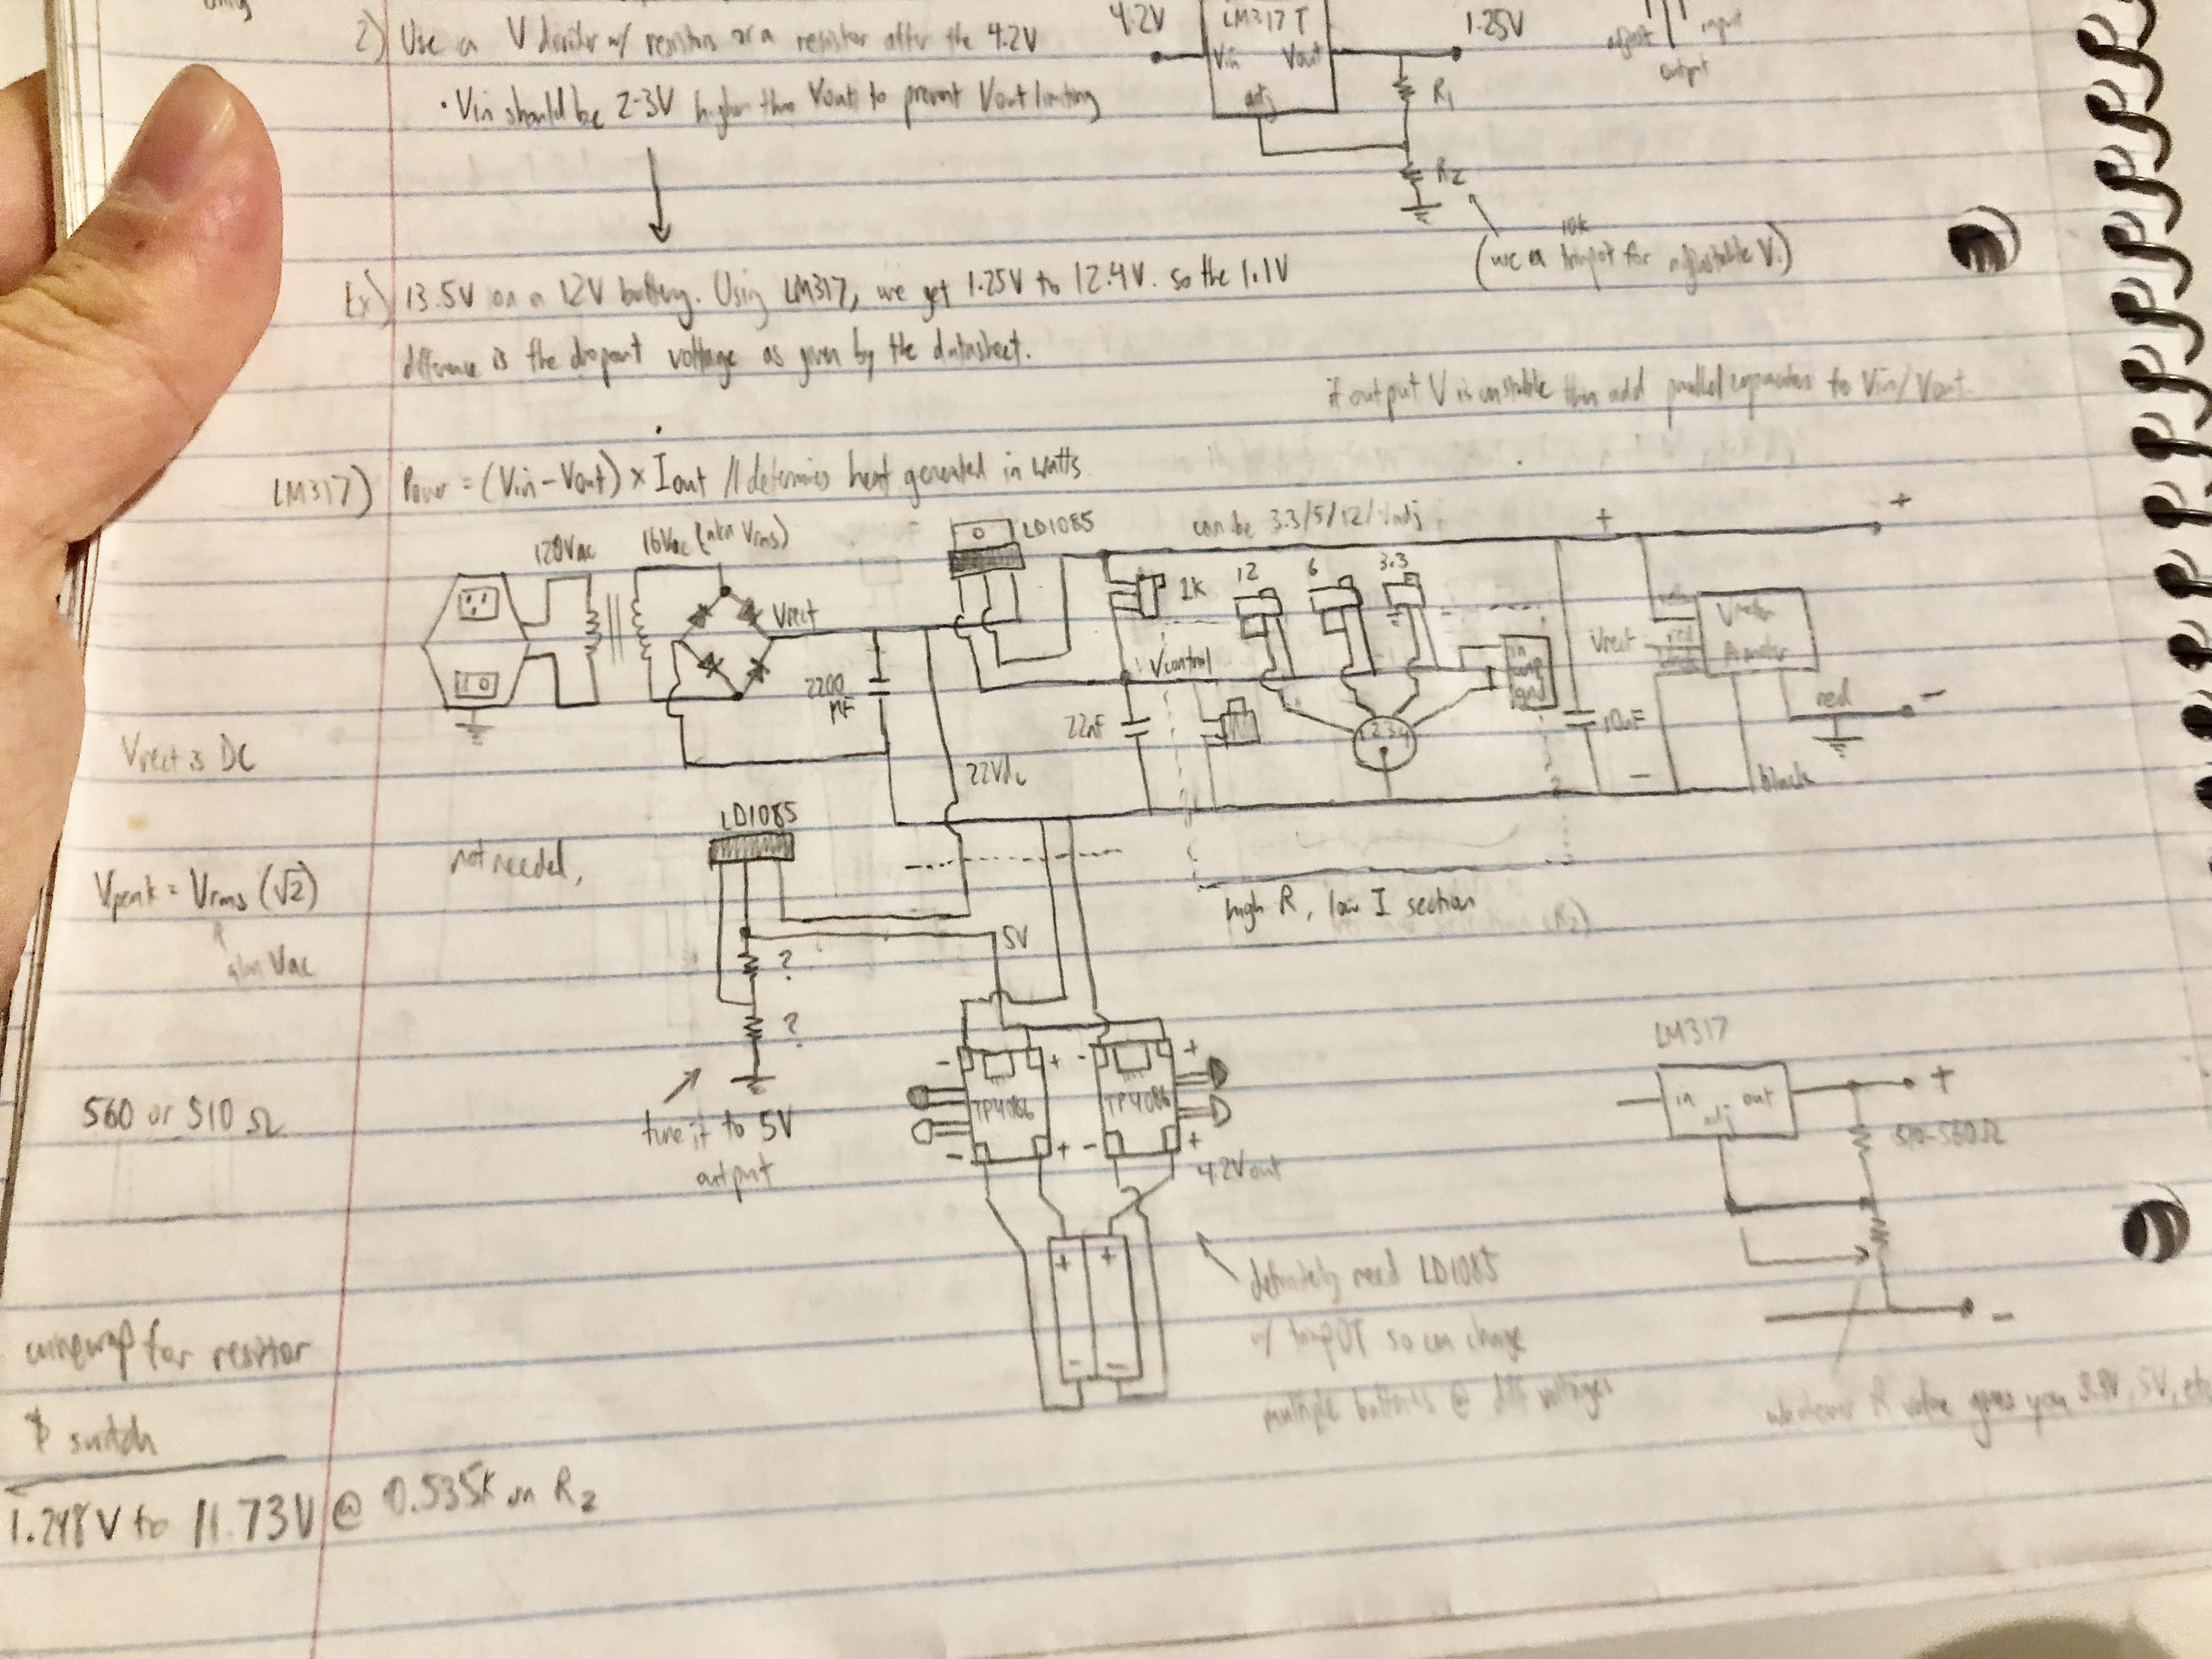 only
2) Use a V divider w/ resistors or a resistor after the 4.2V
· Vin should be 2-3V higher than Vout to prevent Vout limiting
4.2V
LM317T
1.25V
Vin
Vout
adj
R1
R2
adjust
input
output
10k
(use a trimpot for adjustable V.)
Ex) 13.5V on a 12V battery. Using LM317, we get 1.25V to 12.4V. so the 1.1V
difference is the dropout voltage as given by the datasheet.
if output V is unstable then add parallel capacitors to Vin/Vout.
LM317) Power = (Vin-Vout) × Iout // determines heat generated in watts
120Vac
16Vac (aka Vrms)
LD1085
can be 3.3/5/12/Vadj
+
+
Vrect
1K
12
6
3.3
Vcontrol
2200
22nF
1234
in
gnd
10uF
Vrect
red
red
-
-
black
Vrect is DC
22Vdc
LD1085
not needed,
Vpeak = Vrms (√2)
Vac
high R, low I section
5V
?
?
- + - +
TP4086 TP4086
- + - +
4.2Vout
tune it to 5V
output
560 or 510 Ω
+ +
- -
definitely need LD1085
w/ trimpOT so can charge
multiple batteries @ diff voltages
LM317
in
out
adj
+
510-560Ω
-
whatever R value gives you 3.3V, 5V, etc
wirewrap for resistor
& switch
1.248V to 11.73V @ 0.535K on R2